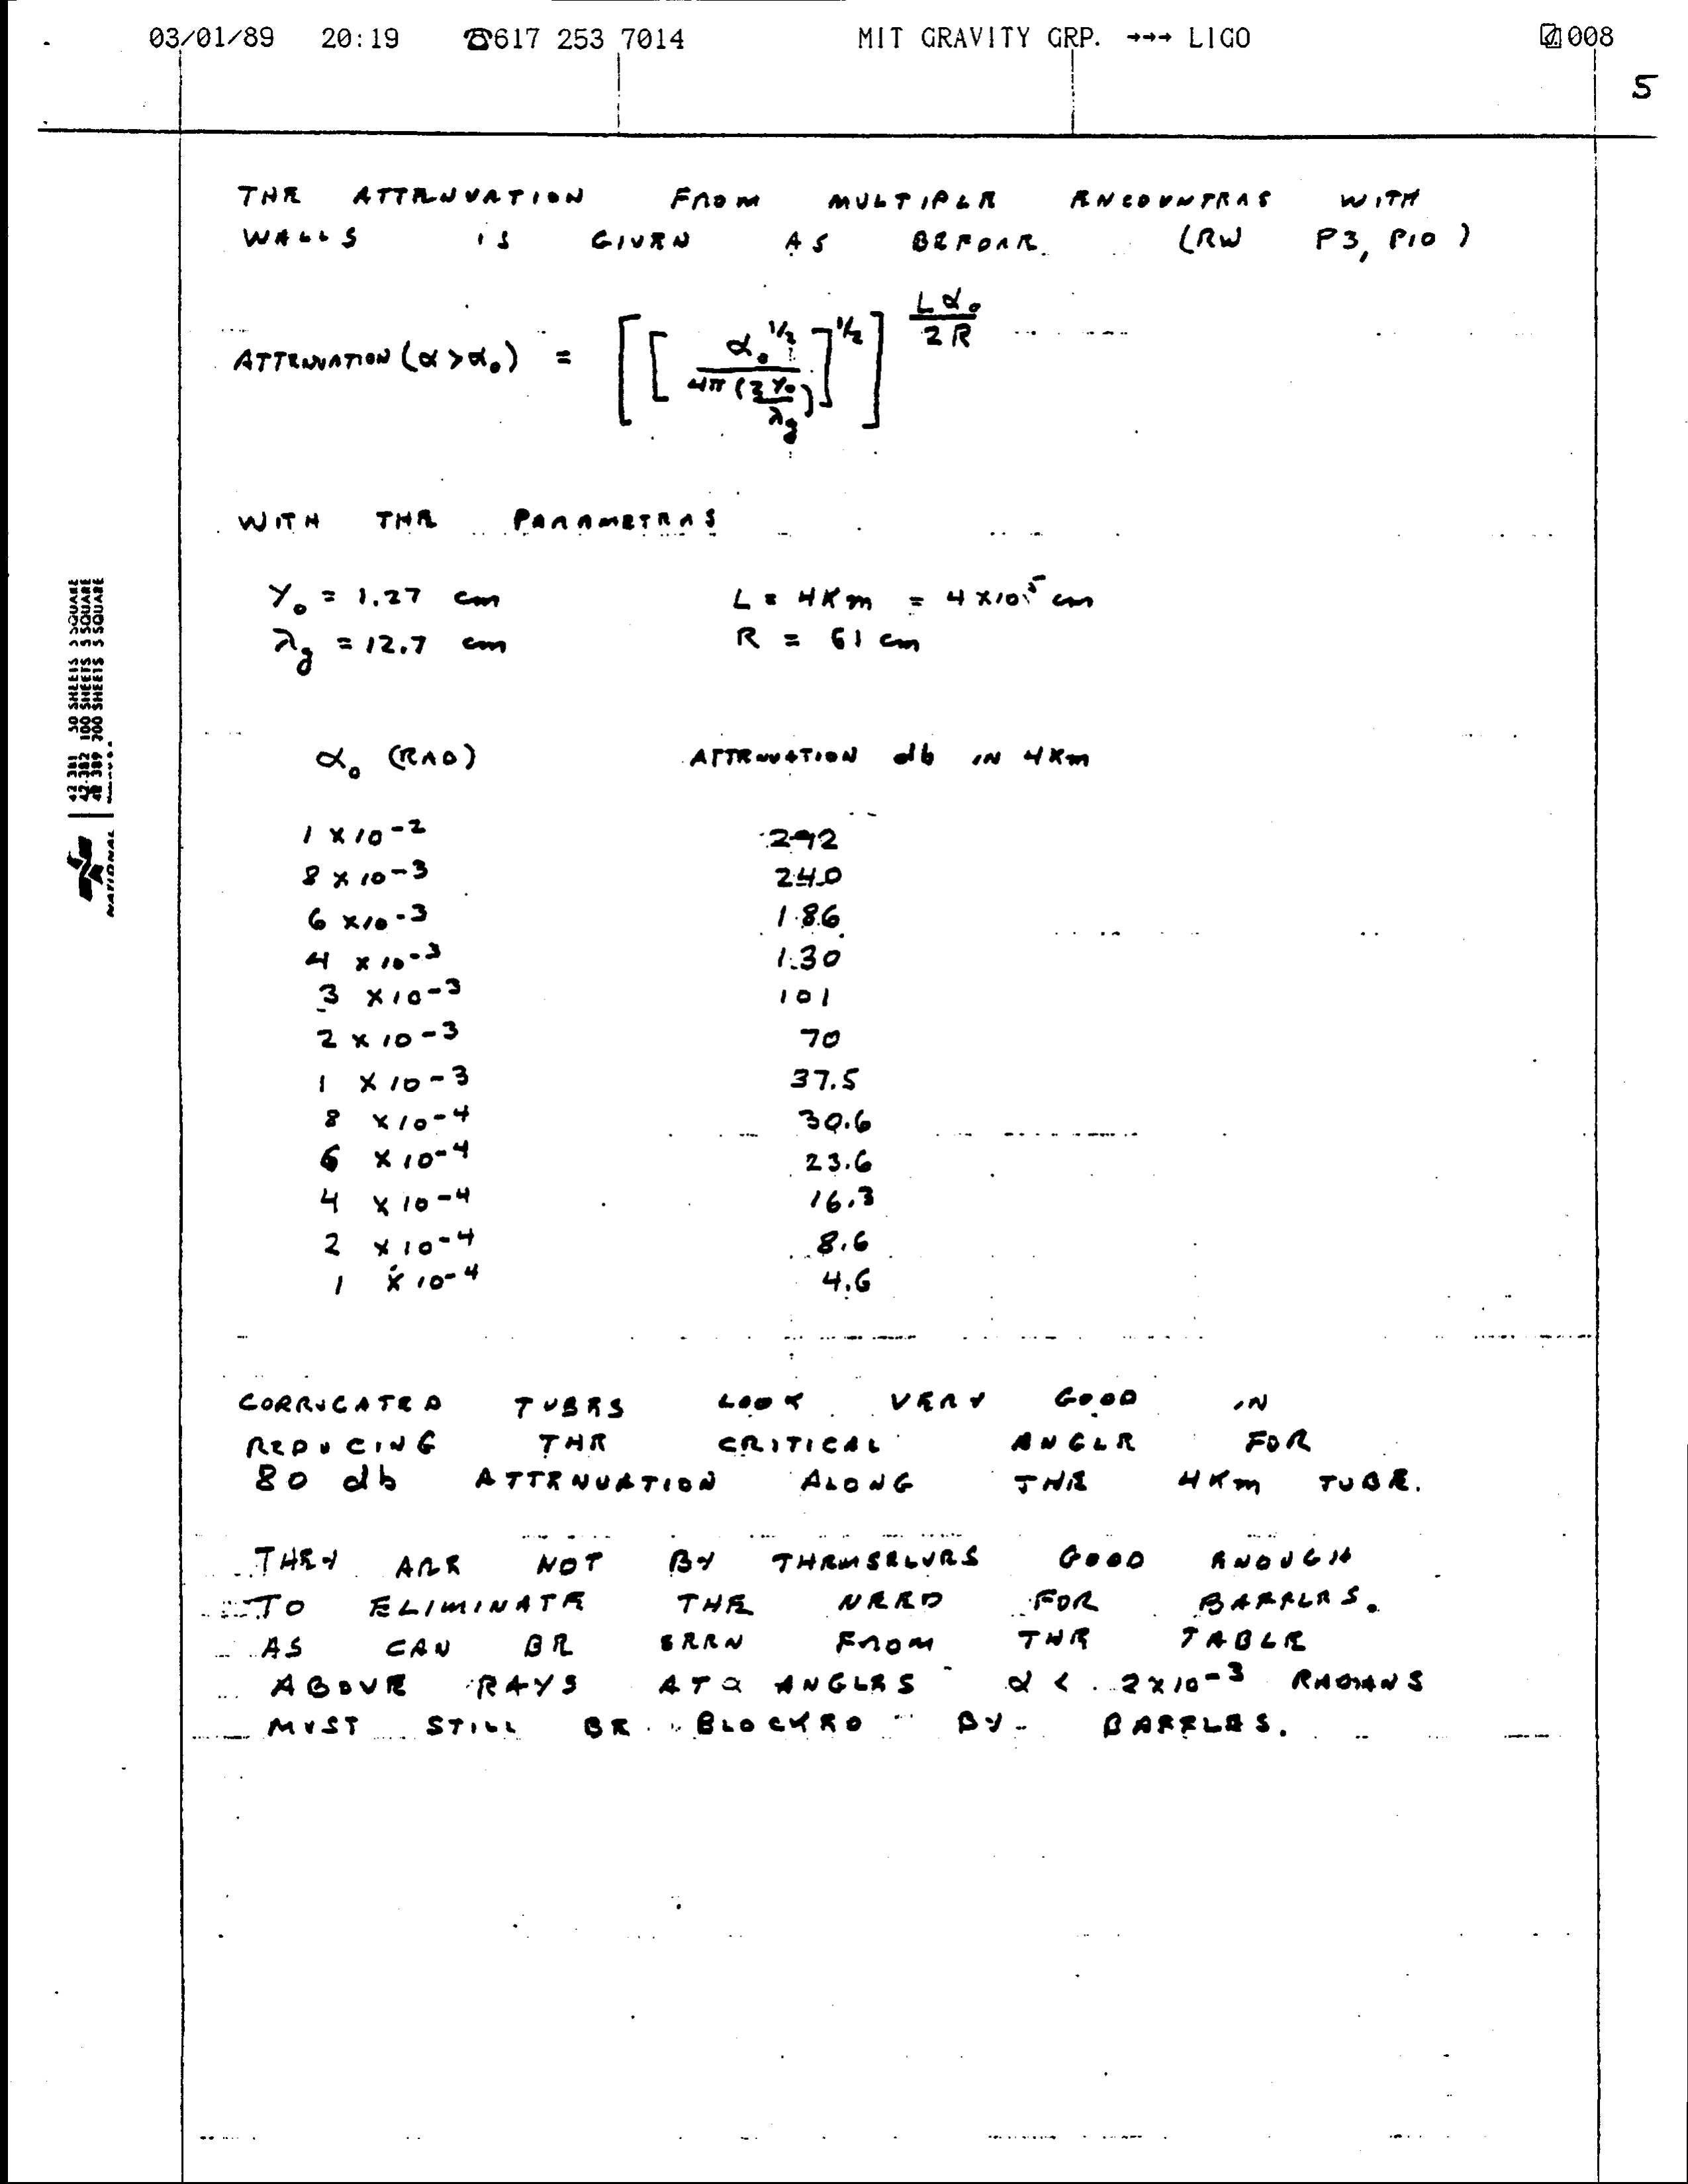 03/01/89 20:19 ☎617 253 7014 MIT GRAVITY GRP. →→→ LIGO 008
5
THE ATTENUATION FROM MULTIPLE ENCOUNTERS WITH
WALLS IS GIVEN AS BEFORE. (RW P3, P10)
ATTENUATION (α > α₀) = [ [ α₀^1/2 / 4π (2 Y₀ / λg) ]^1/2 ]^(L α₀ / 2R)
WITH THE PARAMETERS
Y₀ = 1.27 cm L = 4Km = 4 x 10⁵ cm
λg = 12.7 cm R = 61 cm
α₀ (RAD) ATTENUATION db IN 4Km
1 x 10-2 292
8 x 10-3 240
6 x 10-3 186
4 x 10-3 130
3 x 10-3 101
2 x 10-3 70
1 x 10-3 37.5
8 x 10-4 30.6
6 x 10-4 23.6
4 x 10-4 16.3
2 x 10-4 8.6
1 x 10-4 4.6
CORRUGATED TUBES LOOK VERY GOOD IN
REDUCING THE CRITICAL ANGLE FOR
80 db ATTENUATION ALONG THE 4Km TUBE.
THEY ARE NOT BY THEMSELVES GOOD ENOUGH
TO ELIMINATE THE NEED FOR BAFFLES.
AS CAN BE SEEN FROM THE TABLE
ABOVE RAYS AT ANGLES α < 2x10-3 RADIANS
MUST STILL BE BLOCKED BY BAFFLES.
42 381 50 SHEETS 5 SQUARE
42 382 100 SHEETS 5 SQUARE
42 389 200 SHEETS 5 SQUARE
NATIONAL